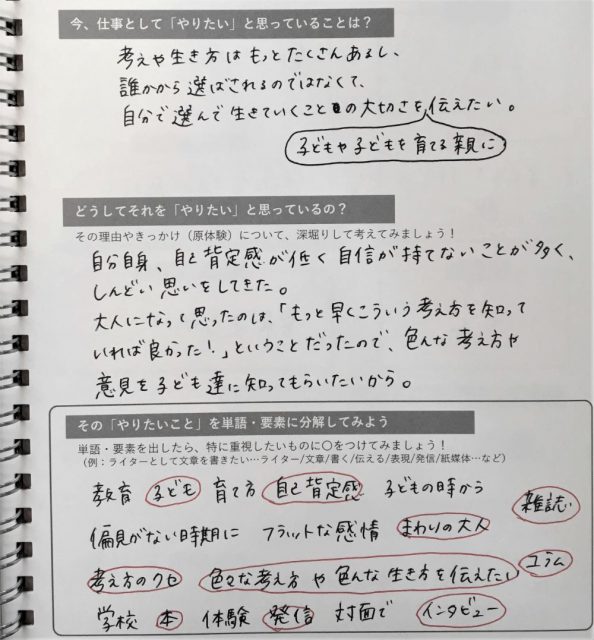 今、仕事として「やりたい」と思っていることは？
考えや生き方はもっとたくさんあるし、
誰かから選ばされるのではなくて、
自分で選んで生きていくことの大切さを伝えたい。
子どもや子どもを育てる親に
どうしてそれを「やりたい」と思っているの？
その理由やきっかけ（原体験）について、深堀りして考えてみましょう！
自分自身、自己肯定感が低く自信が持てないことが多く、
しんどい思いをしてきた。
大人になって思ったのは、「もっと早くこういう考え方を知って
いれば良かった！」ということだったので、色んな考え方や
意見を子ども達に知ってもらいたいから。
その「やりたいこと」を単語・要素に分解してみよう
単語・要素を出したら、特に重視したいものに〇をつけてみましょう！
（例：ライターとして文章を書きたい…ライター/文章/書く/伝える/表現/発信/紙媒体…など）
教育 子ども 育て方 自己肯定感 子どもの時から
雑誌
偏見がない時期に フラットな感情 まわりの大人
コラム
考え方のクセ 色々な考え方や色んな生き方を伝えたい
学校 本 体験 発信 対面で インタビュー